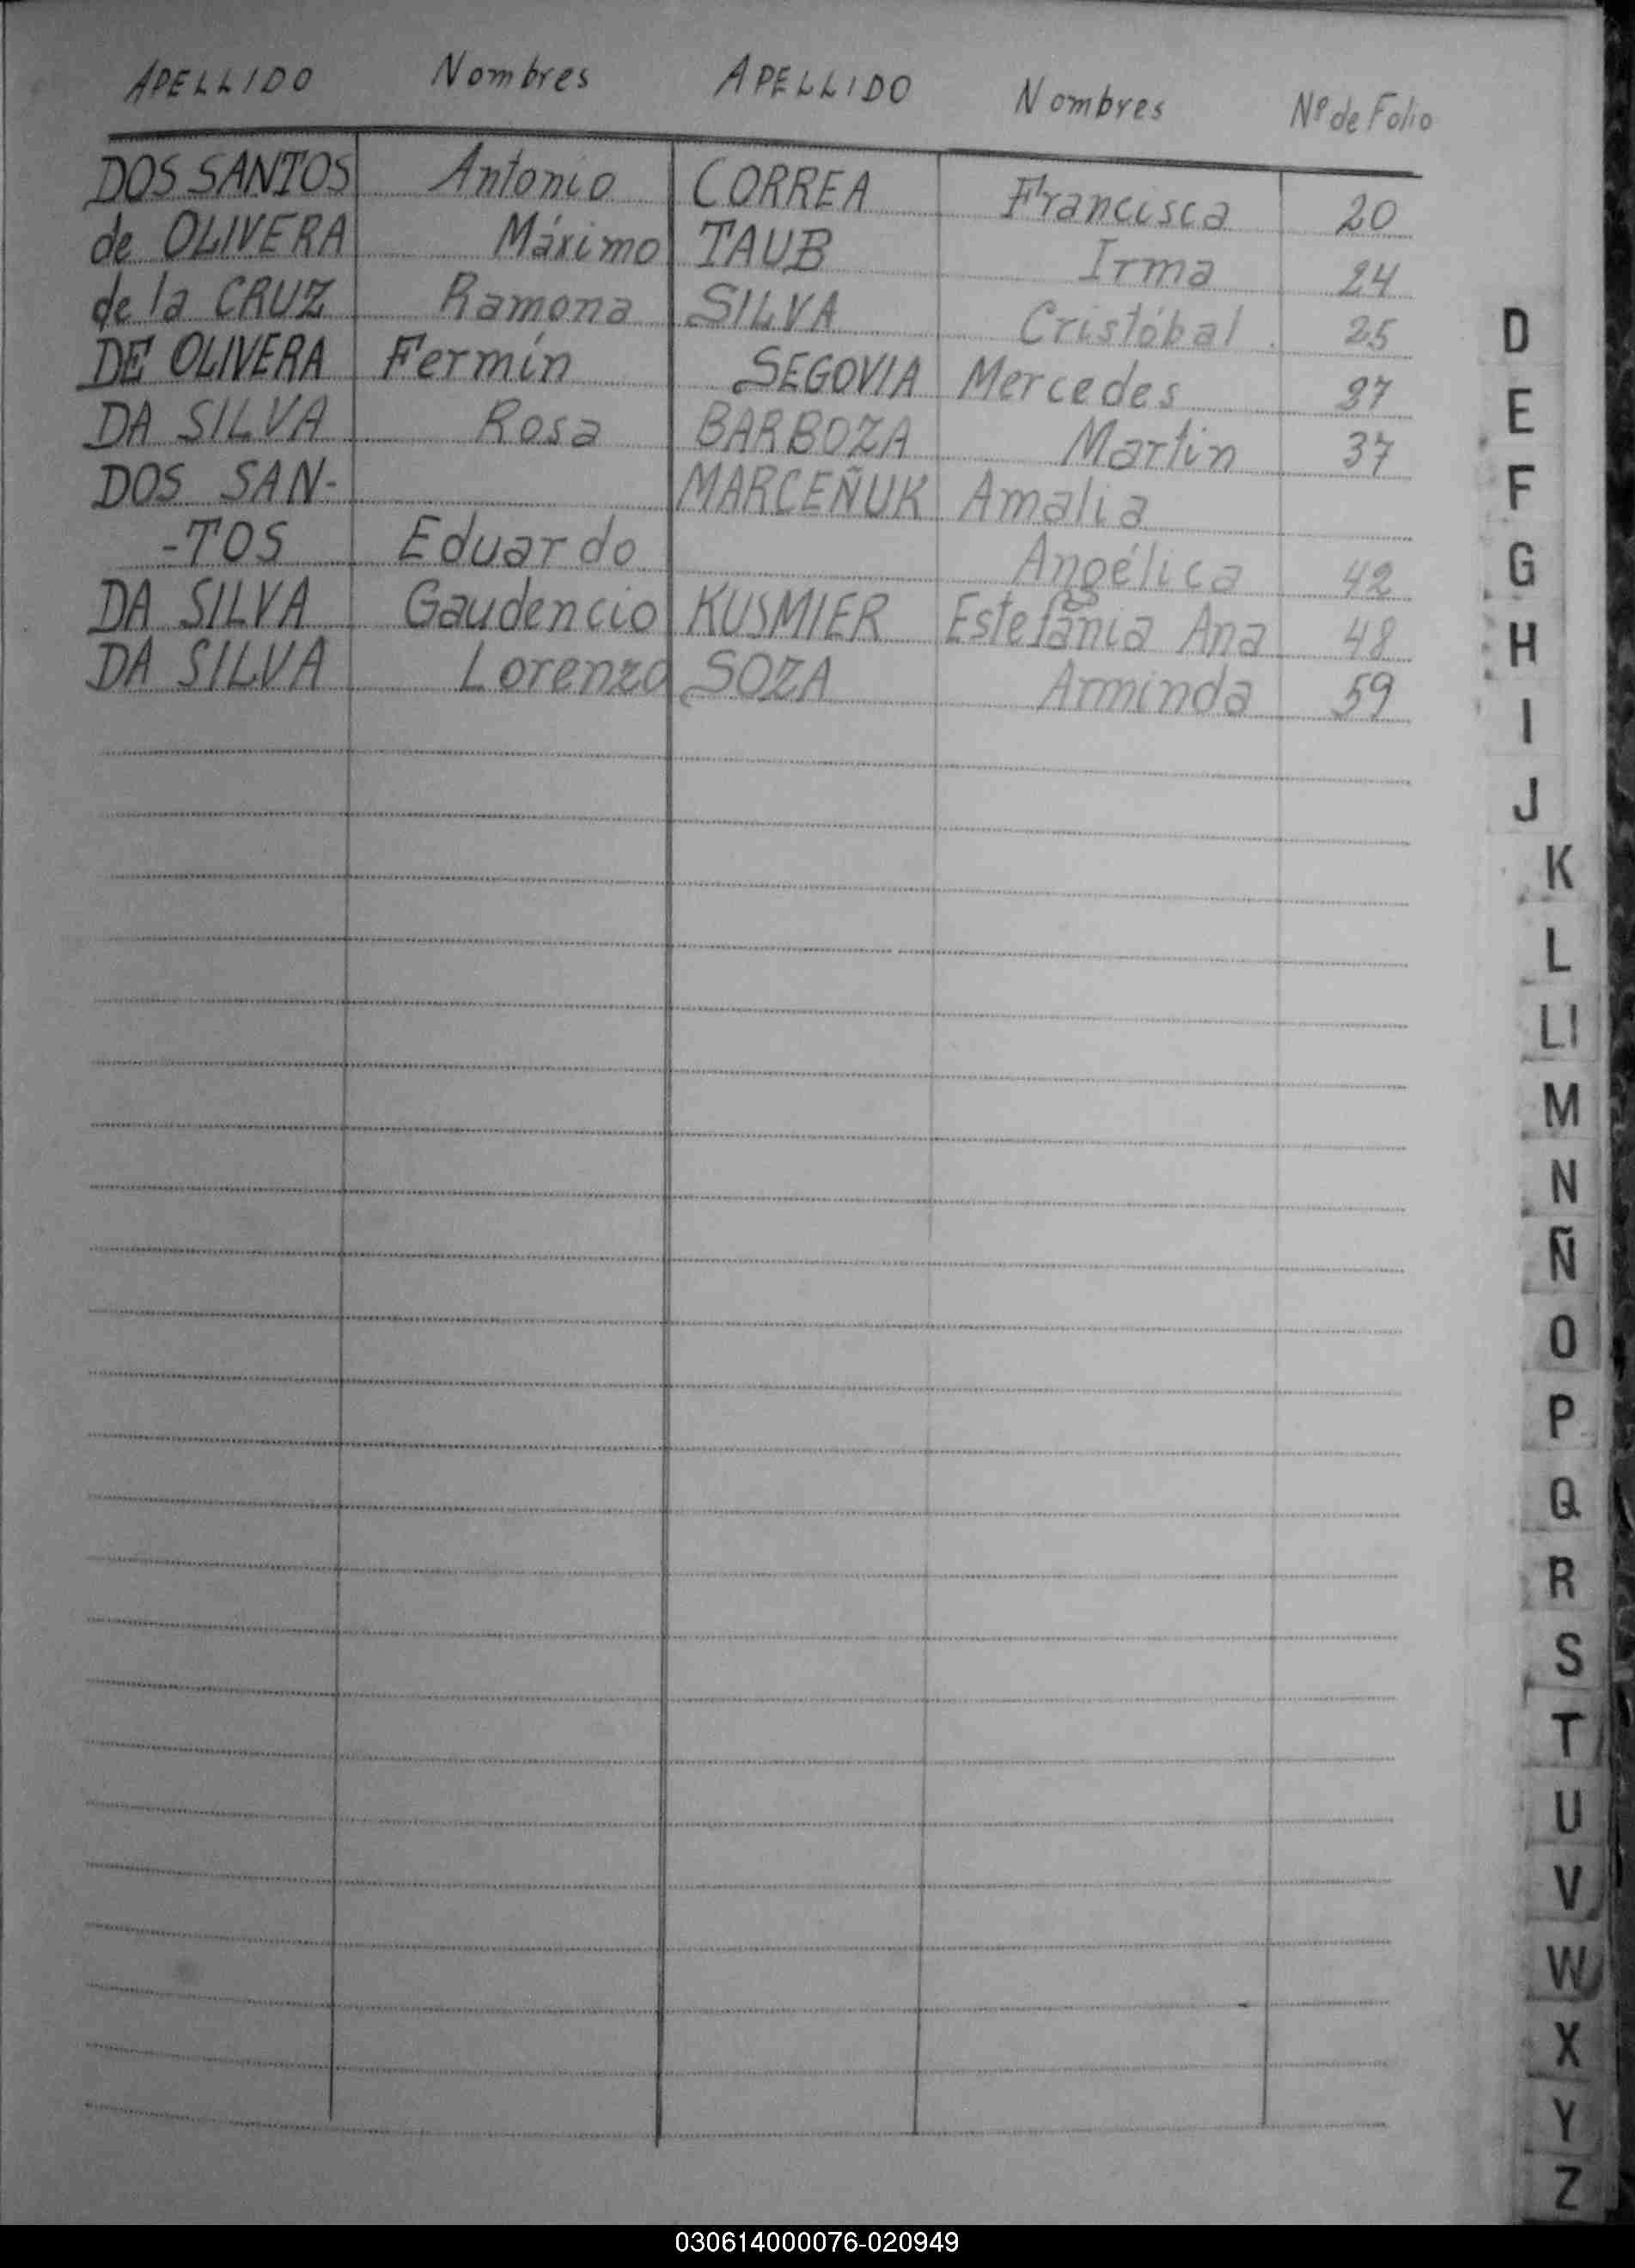 APELLIDO Nombres APELLIDO Nombres Nº de Folio
DOS SANTOS Antonio CORREA Francisca 20
de OLIVERA Máximo TAUB Irma 24
de la CRUZ Ramona SILVA Cristóbal 25
DE OLIVERA Fermín SEGOVIA Mercedes 37
DA SILVA Rosa BARBOZA Martin 37
DOS SAN- MARCEÑUK Amalia
-TOS Eduardo Angélica 42
DA SILVA Gaudencio KUSMIER Estefania Ana 48
DA SILVA Lorenzo SOZA Arminda 59
D
E
F
G
H
I
J
K
L
Ll
M
N
Ñ
O
P
Q
R
S
T
U
V
W
X
Y
Z
030614000076-020949